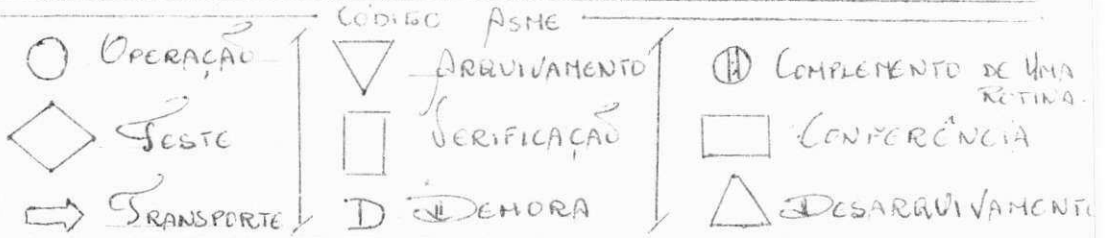 CÓDIGO ASME
OPERAÇÃO
TESTE
TRANSPORTE
ARQUIVAMENTO
VERIFICAÇÃO
D DEMORA
COMPLEMENTO DE UMA
ROTINA.
CONFERÊNCIA
DESARQUIVAMENTO